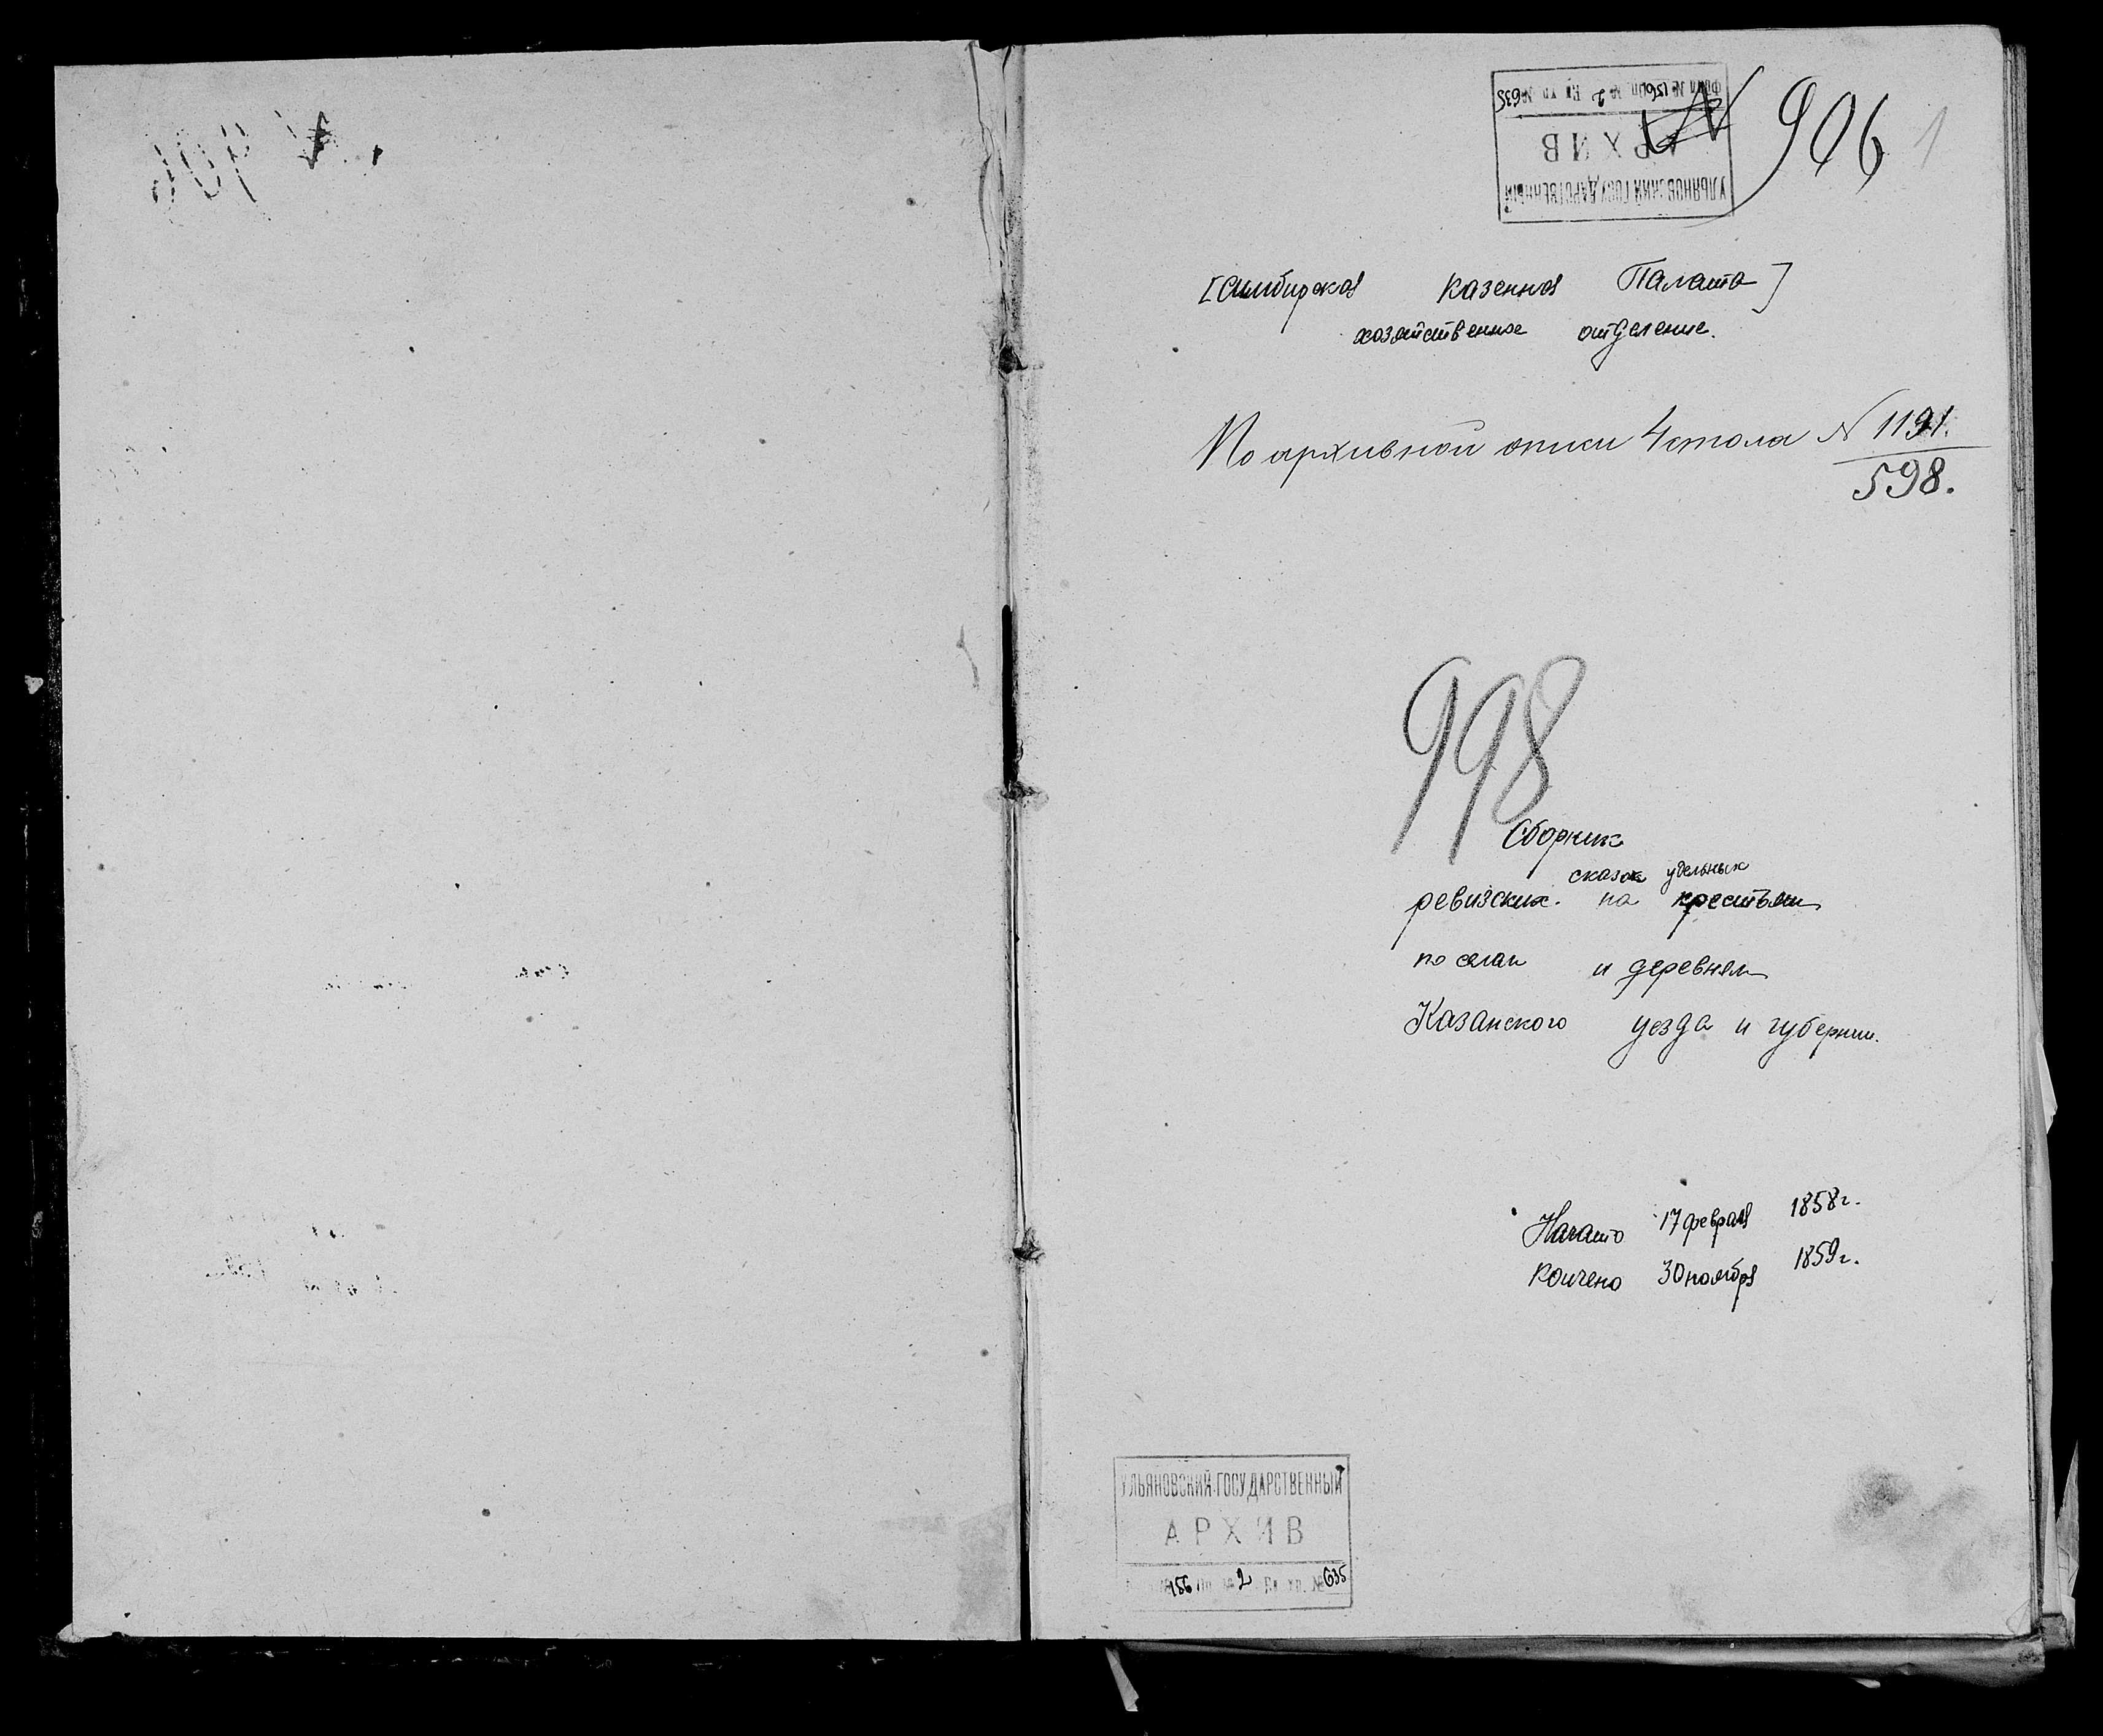 906 1
Фонд № 156 Оп. № 2 Ед. хр. № 635
АРХИВ
УЛЬЯНОВСКИЙ ГОСУДАРСТВЕННЫЙ
[Симбирская Казенная Палата]
хозяйственное отделение.
По архивной описи 4 стола № 1191.
598.
998
Сборник
сказок удельных
ревизских на крестьян
по селам и деревням
Казанского уезда и губернии.
Начато 17 февраля 1858 г.
Кончено 30 ноября 1859 г.
УЛЬЯНОВСКИЙ ГОСУДАРСТВЕННЫЙ
АРХИВ
156 Оп. № 2 Ед. хр. № 635